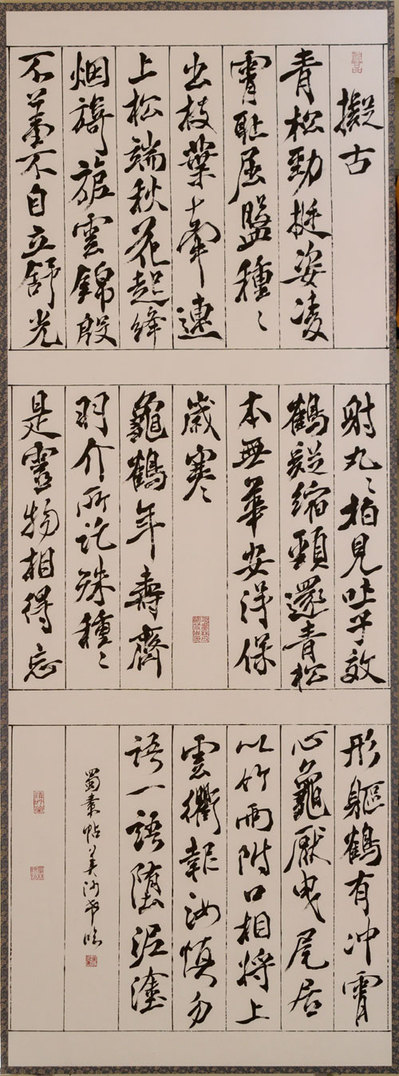 擬古
青松勁挺姿凌
霄耻屈盤種〻
出枝葉牽連
上松端秋花起絳
烟旖旎雲錦殷
不羞不自立舒光
射丸〻柏見吐子效
鶴疑縮頸還青松
本無華安得保
歲寒
龜鶴年壽齊
羽介所託殊種〻
是靈物相得忘
形軀鶴有冲霄
心龜厭曳尾居
以竹兩附口相將上
雲衢報汝慎勿
語一語墮泥塗
蜀素帖 美沙希臨